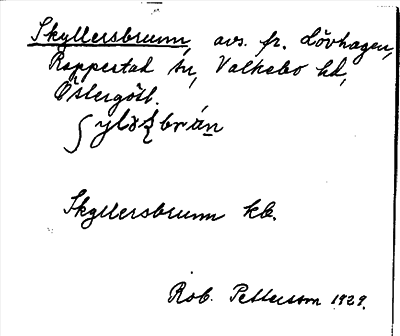 Skyllersbrunn, avs. fr. Lövhagen,
Rappestad sn, Valkebo hd,
Östergötl.
Skyllersbrunn kb.
Rob. Pettersson 1929.